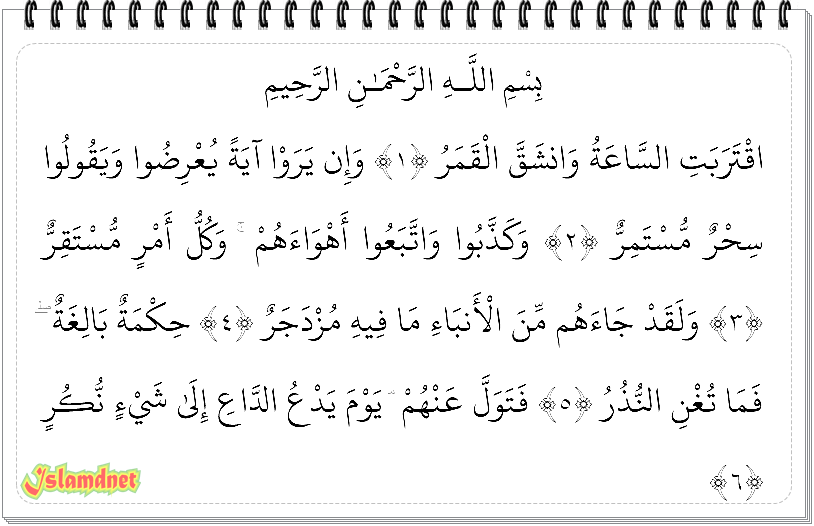 بِسْمِ اللَّـهِ الرَّحْمَـٰنِ الرَّحِيمِ
اقْتَرَبَتِ السَّاعَةُ وَانشَقَّ الْقَمَرُ ﴿١﴾ وَإِن يَرَوْا آيَةً يُعْرِضُوا وَيَقُولُوا
سِحْرٌ مُّسْتَمِرٌّ ﴿٢﴾ وَكَذَّبُوا وَاتَّبَعُوا أَهْوَاءَهُمْ ۚ وَكُلُّ أَمْرٍ مُّسْتَقِرٌّ
﴿٣﴾ وَلَقَدْ جَاءَهُم مِّنَ الْأَنبَاءِ مَا فِيهِ مُزْدَجَرٌ ﴿٤﴾ حِكْمَةٌ بَالِغَةٌ ۖ
فَمَا تُغْنِ النُّذُرُ ﴿٥﴾ فَتَوَلَّ عَنْهُمْ ۘ يَوْمَ يَدْعُ الدَّاعِ إِلَىٰ شَيْءٍ نُّكُرٍ
﴿٦﴾
Islamdnet